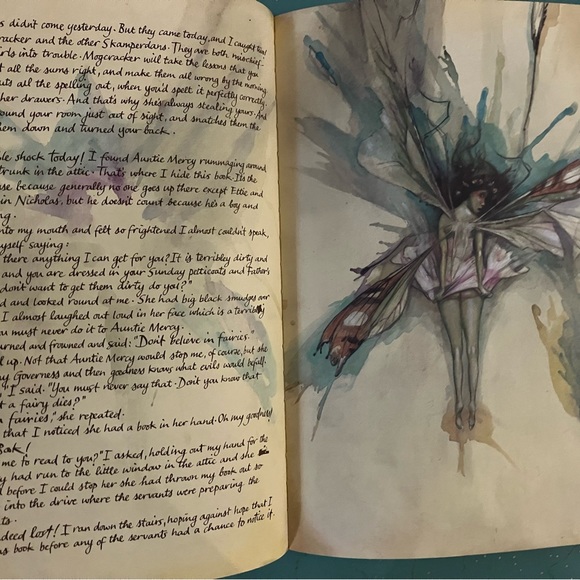 s didn't come yesterday. But they came today, and I caught two!
racker and the other Skamperdans. They are both mischief-
irls into trouble. Mogcracker will take the lessons that you
t all the sums right, and make them all wrong by the morning
uts all the spelling out, when you'd spelt it perfectly correctly
her drawers. And that's why she's always stealing yours. And
ound your room just out of sight, and snatches them the
hem down and turned your back.
ble shock today! I found Auntie Mercy rummaging around
trunk in the attic. That's where I hide this book. It's the
use because generally no one goes up there except Ettie and
in Nicholas, but he doesn't count because he's a boy and
ng.
nto my mouth and felt so frightened I almost couldn't speak,
yself saying:
there anything I can get for you? It is terribly dirty and
and you are dressed in your Sunday petticoats and Father's
don't want to get them dirty do you?"
d and looked round at me. She had big black smudges our
I almost laughed out loud in her face which is a terribly
ou must never do it to Auntie Mercy.
urned and frowned and said: "Don't believe in fairies."
l up. Not that Auntie Mercy would stop me, of course, but she
my Governess and then goodness knows what evils would befall.
" I said. "You must never say that. Don't you know that
t a fairy dies?"
n fairies," she repeated.
that I noticed she had a book in her hand. Oh my goodness!
Book!
me to read to you?" I asked, holding out my hand for the
y had run to the little window in the attic and she
d before I could stop her she had thrown my book out so
into the drive where the servants were preparing the
ts.
deed lost! I ran down the stairs, hoping against hope that I
as book before any of the servants had a chance to notice it.